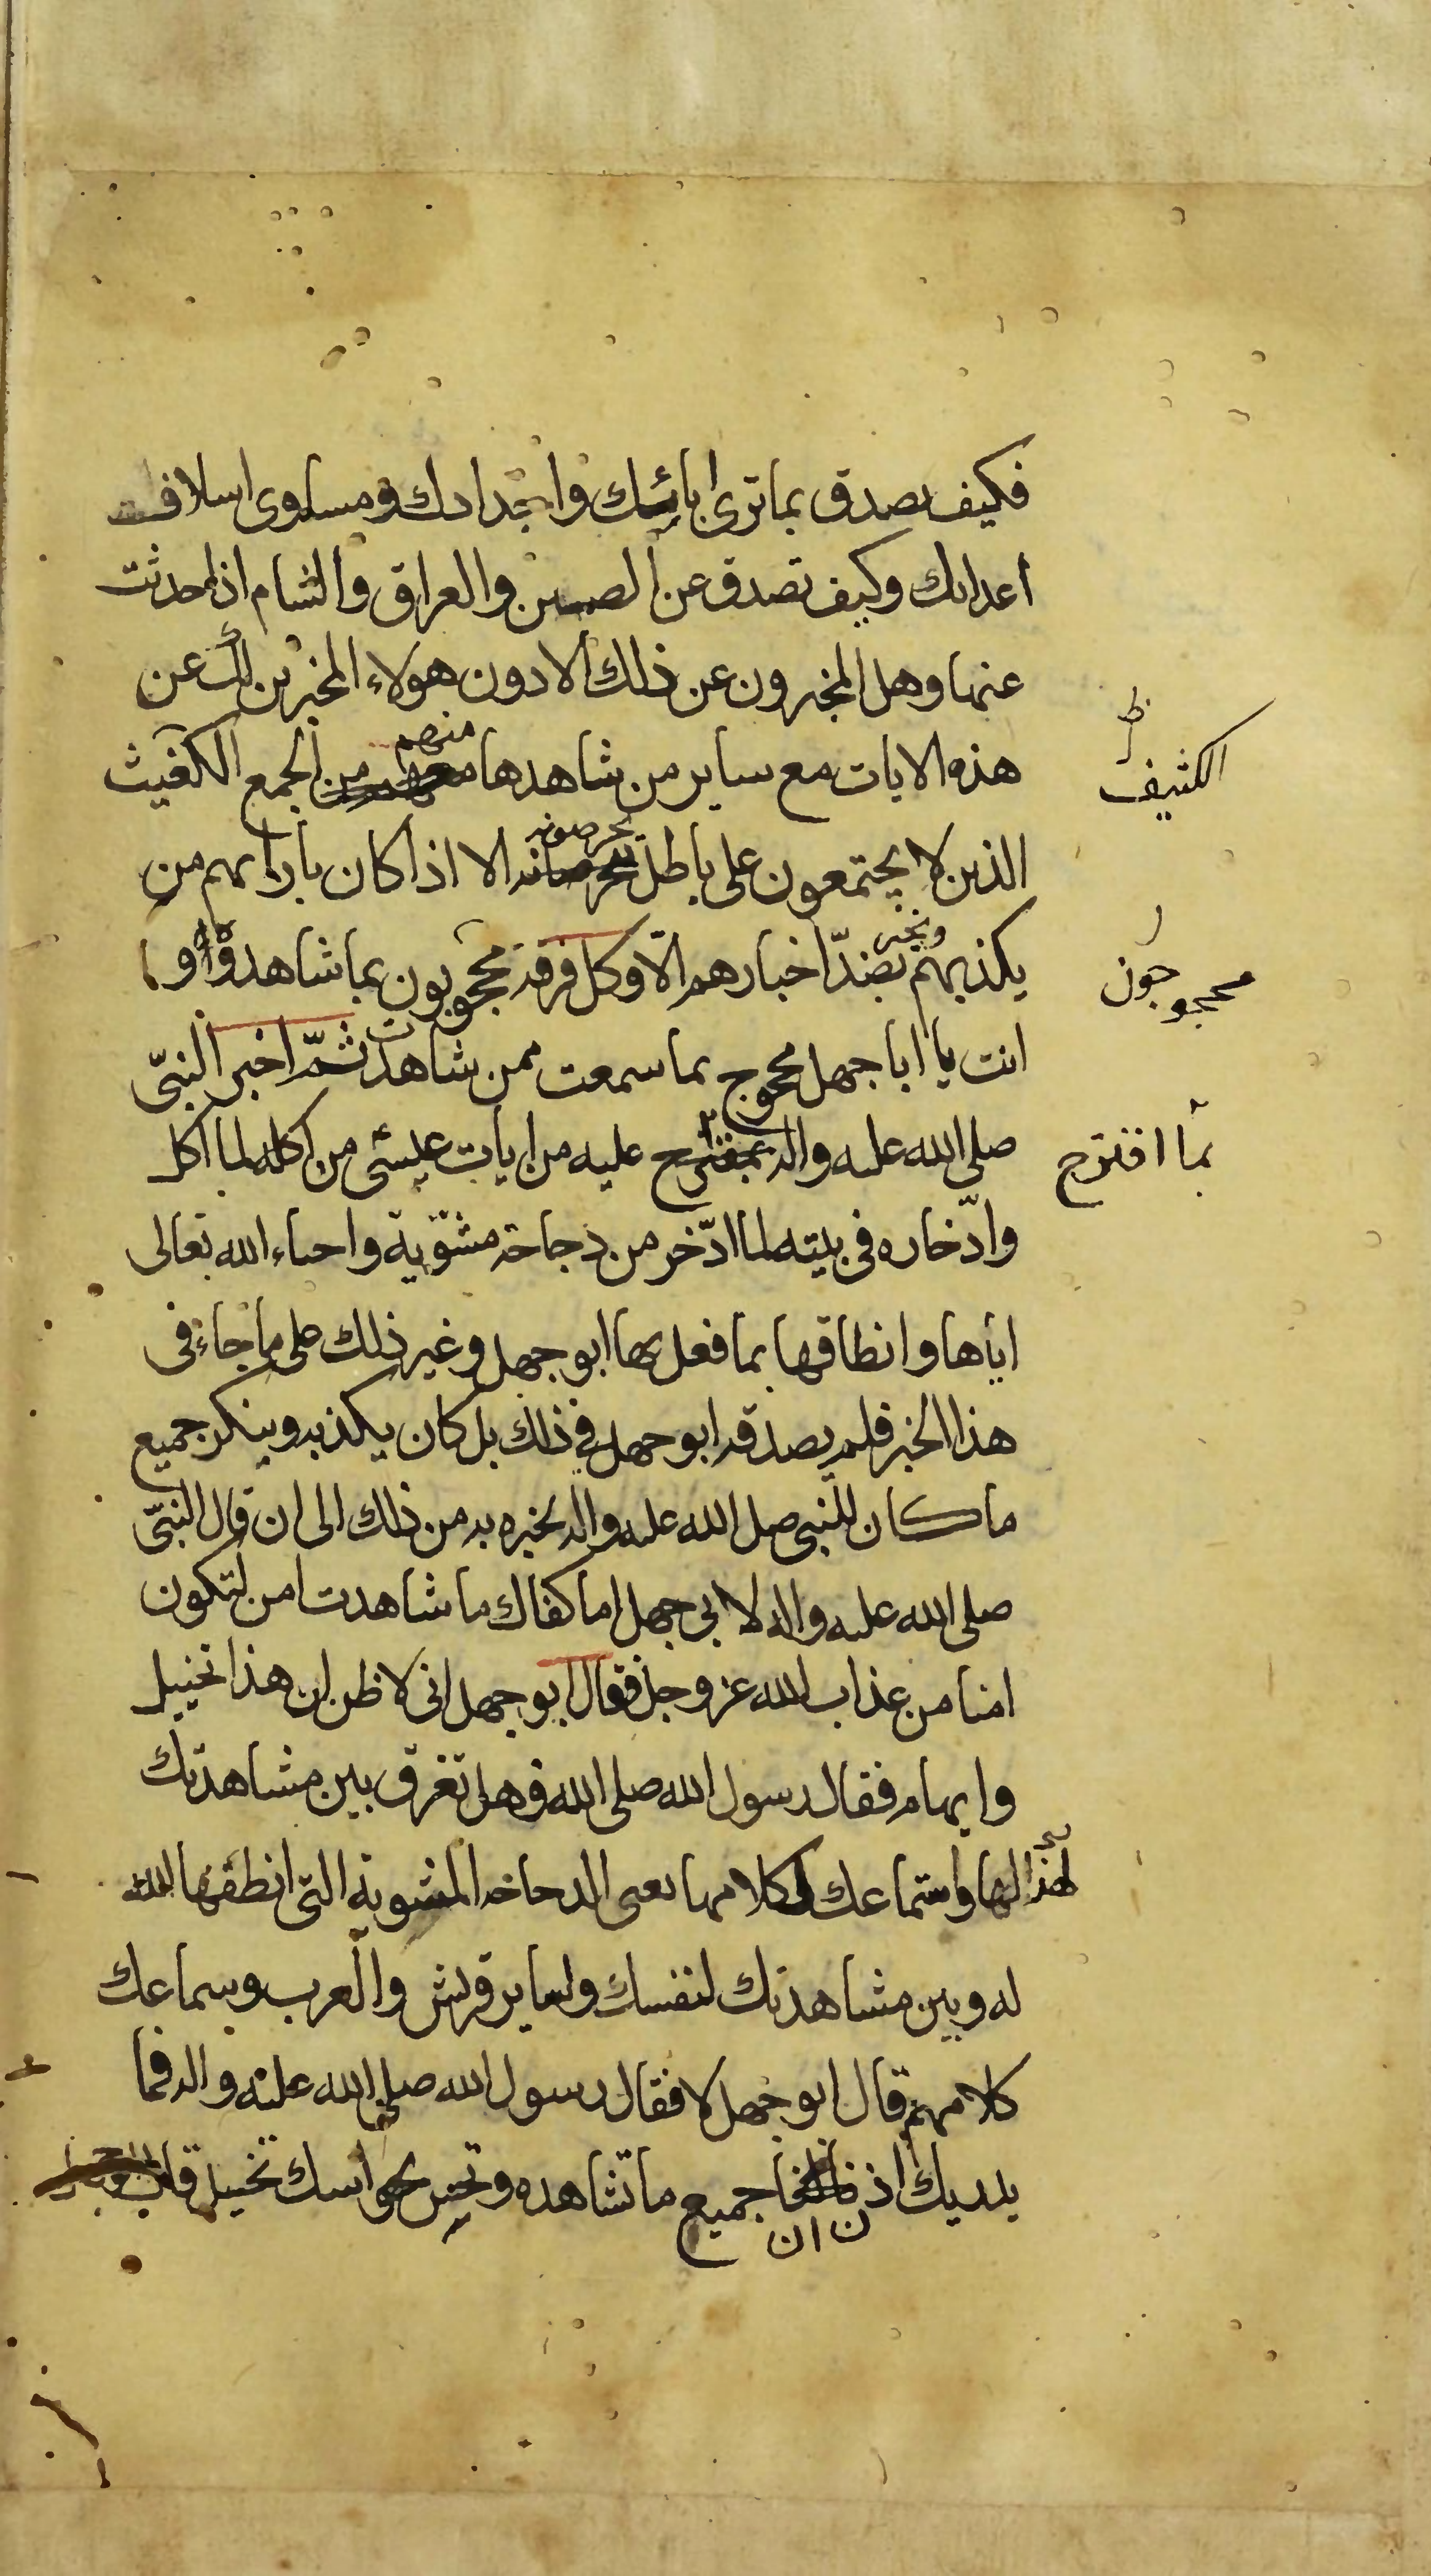 فكيف تصدق بماترى ابائك واجدادك ومساوى اسلاف
اعدائك وكيف تصدق عن الصين والعراق والشام اذا حدثت
عنها وهل المخبرون عن ذلك الا دون هولاء المخبرين لك عن
هذه الايات مع ساير من شاهدها منهم من الجمع الكفيث
الكثيف
الذين لا يجتمعون على باطل يتخرصونه الا اذا كان بازايهم من
يكذبهم ويخبر بضد اخبارهم الا وكل فرقة محجوبون بما شاهدوا وا
محجوجون
انت يا ابا جهل محجوج بما سمعت ممن شاهدت ثم اخبر النبى
صلى الله عليه واله عليه من ايات عيسى من اكله لما اكل
بما اقترح
وادخاره فى بيته لما ادخر من دجاجة مشوية واحياء الله تعالى
اياها وانطاقها بما فعل بها ابو جهل وغير ذلك على ما جاء فى
هذا الخبر فلم يصدقه ابو جهل فى ذلك بل كان يكذبه وينكر جميع
ما كان للنبى صلى الله عليه واله يخبره به من ذلك الى ان قال النبى
صلى الله عليه واله لابى جهل اما كفاك ما شاهدت امن لتكون
امنا من عذاب الله عز وجل فقال ابو جهل انى لاظن ان هذا تخييل
وايهام فقال رسول الله صلى الله فهل تفرق بين مشاهدتك
لها واستماعك لكلامها يعنى الدجاجة المشوية التى انطقها الله
له وبين مشاهدتك لنفسك ولساير قريش والعرب وسماعك
كلامهم قال ابو جهل لا فقال رسول الله صلى الله عليه واله فما
يدريك اذن ان جميع ما تشاهده وتحس بحواسك تخييل قال